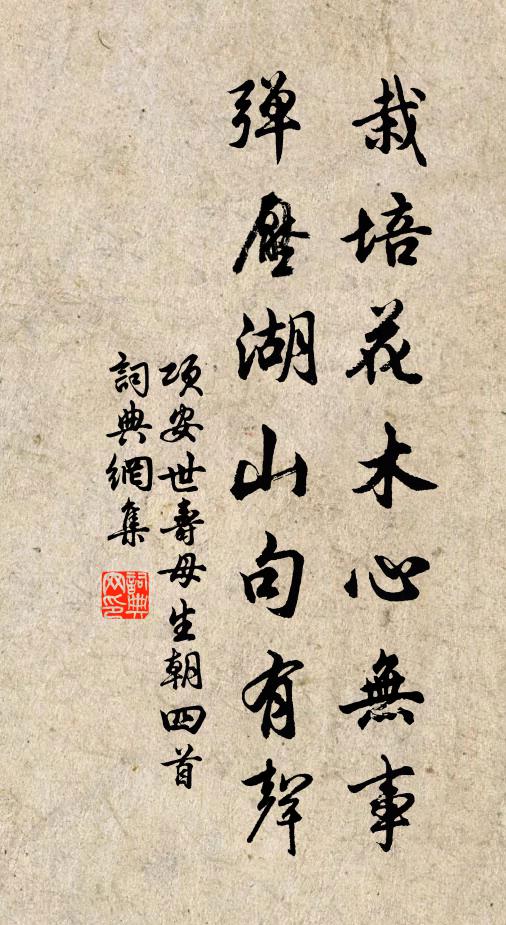 栽培花木心無事
彈壓湖山句有聲
項安世壽母生朝四首
詞典網集
詞典網印